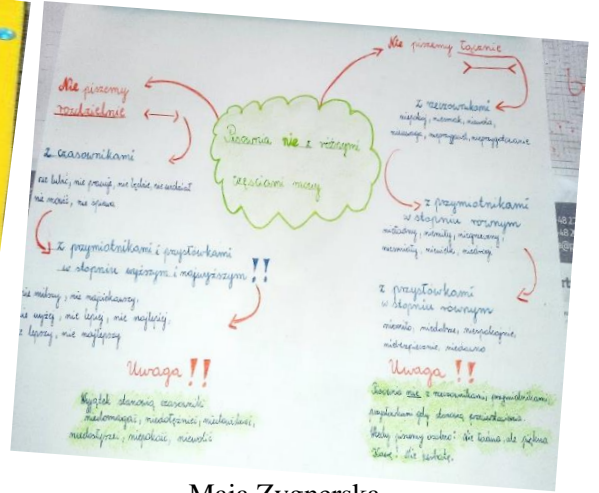 Pisownia nie z różnymi
częściami mowy
Nie piszemy
rozdzielnie
z czasownikami
nie lubić, nie pracuje, nie będzie, nie wiedział
nie mówić, nie śpiewa
z przymiotnikami i przysłówkami
w stopniu wyższym i najwyższym !!
nie milszy, nie najciekawszy,
nie wyżej, nie lepiej, nie najlepiej,
lepszy, nie najlepszy
Uwaga !!
Wyjątek stanowią czasowniki
niedomagać, nienawidzieć,
niedosłyszeć, niepokoić, niewolić
Nie piszemy łącznie
z rzeczownikami
niepokój, niesmak, niewola,
nieuwaga, nieprzyjaciel,
z przymiotnikami
w stopniu równym
nieładny, niemiły, niegrzeczny,
nieśmiały, niewielki,
z przysłówkami
w stopniu równym
niemiło, niedobrze, niespokojnie,
niebezpiecznie, niedawno
Uwaga !!
Pisownia nie z rzeczownikami, przymiotnikami
przysłówkami gdy stanowią przeciwstawienia.
Wtedy piszemy osobno: Nie ładna, ale piękna
Nie
Maja Zygnerska